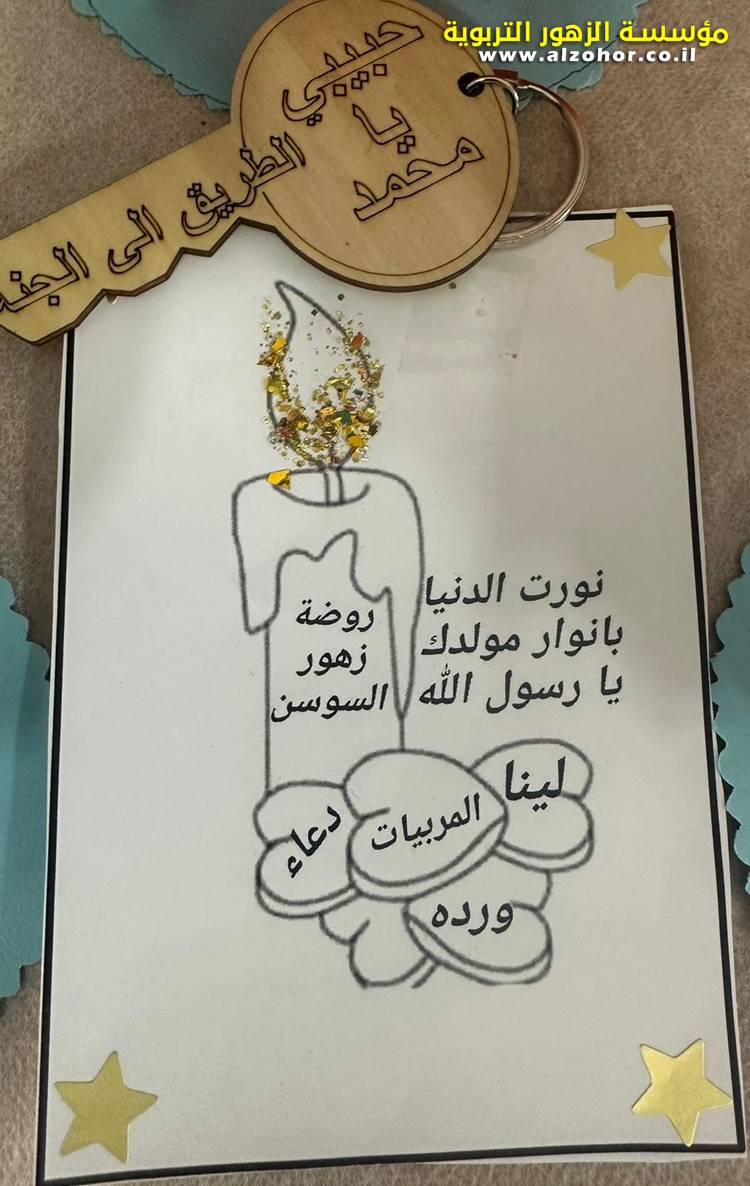 مؤسسة الزهور التربوية
www.alzohor.co.il
حبيبي
يا
محمد
الطريق الى الجنه
نورت الدنيا
بانوار مولدك
يا رسول الله
روضة
زهور
السوسن
لينا
المربيات
دعاء
ورده